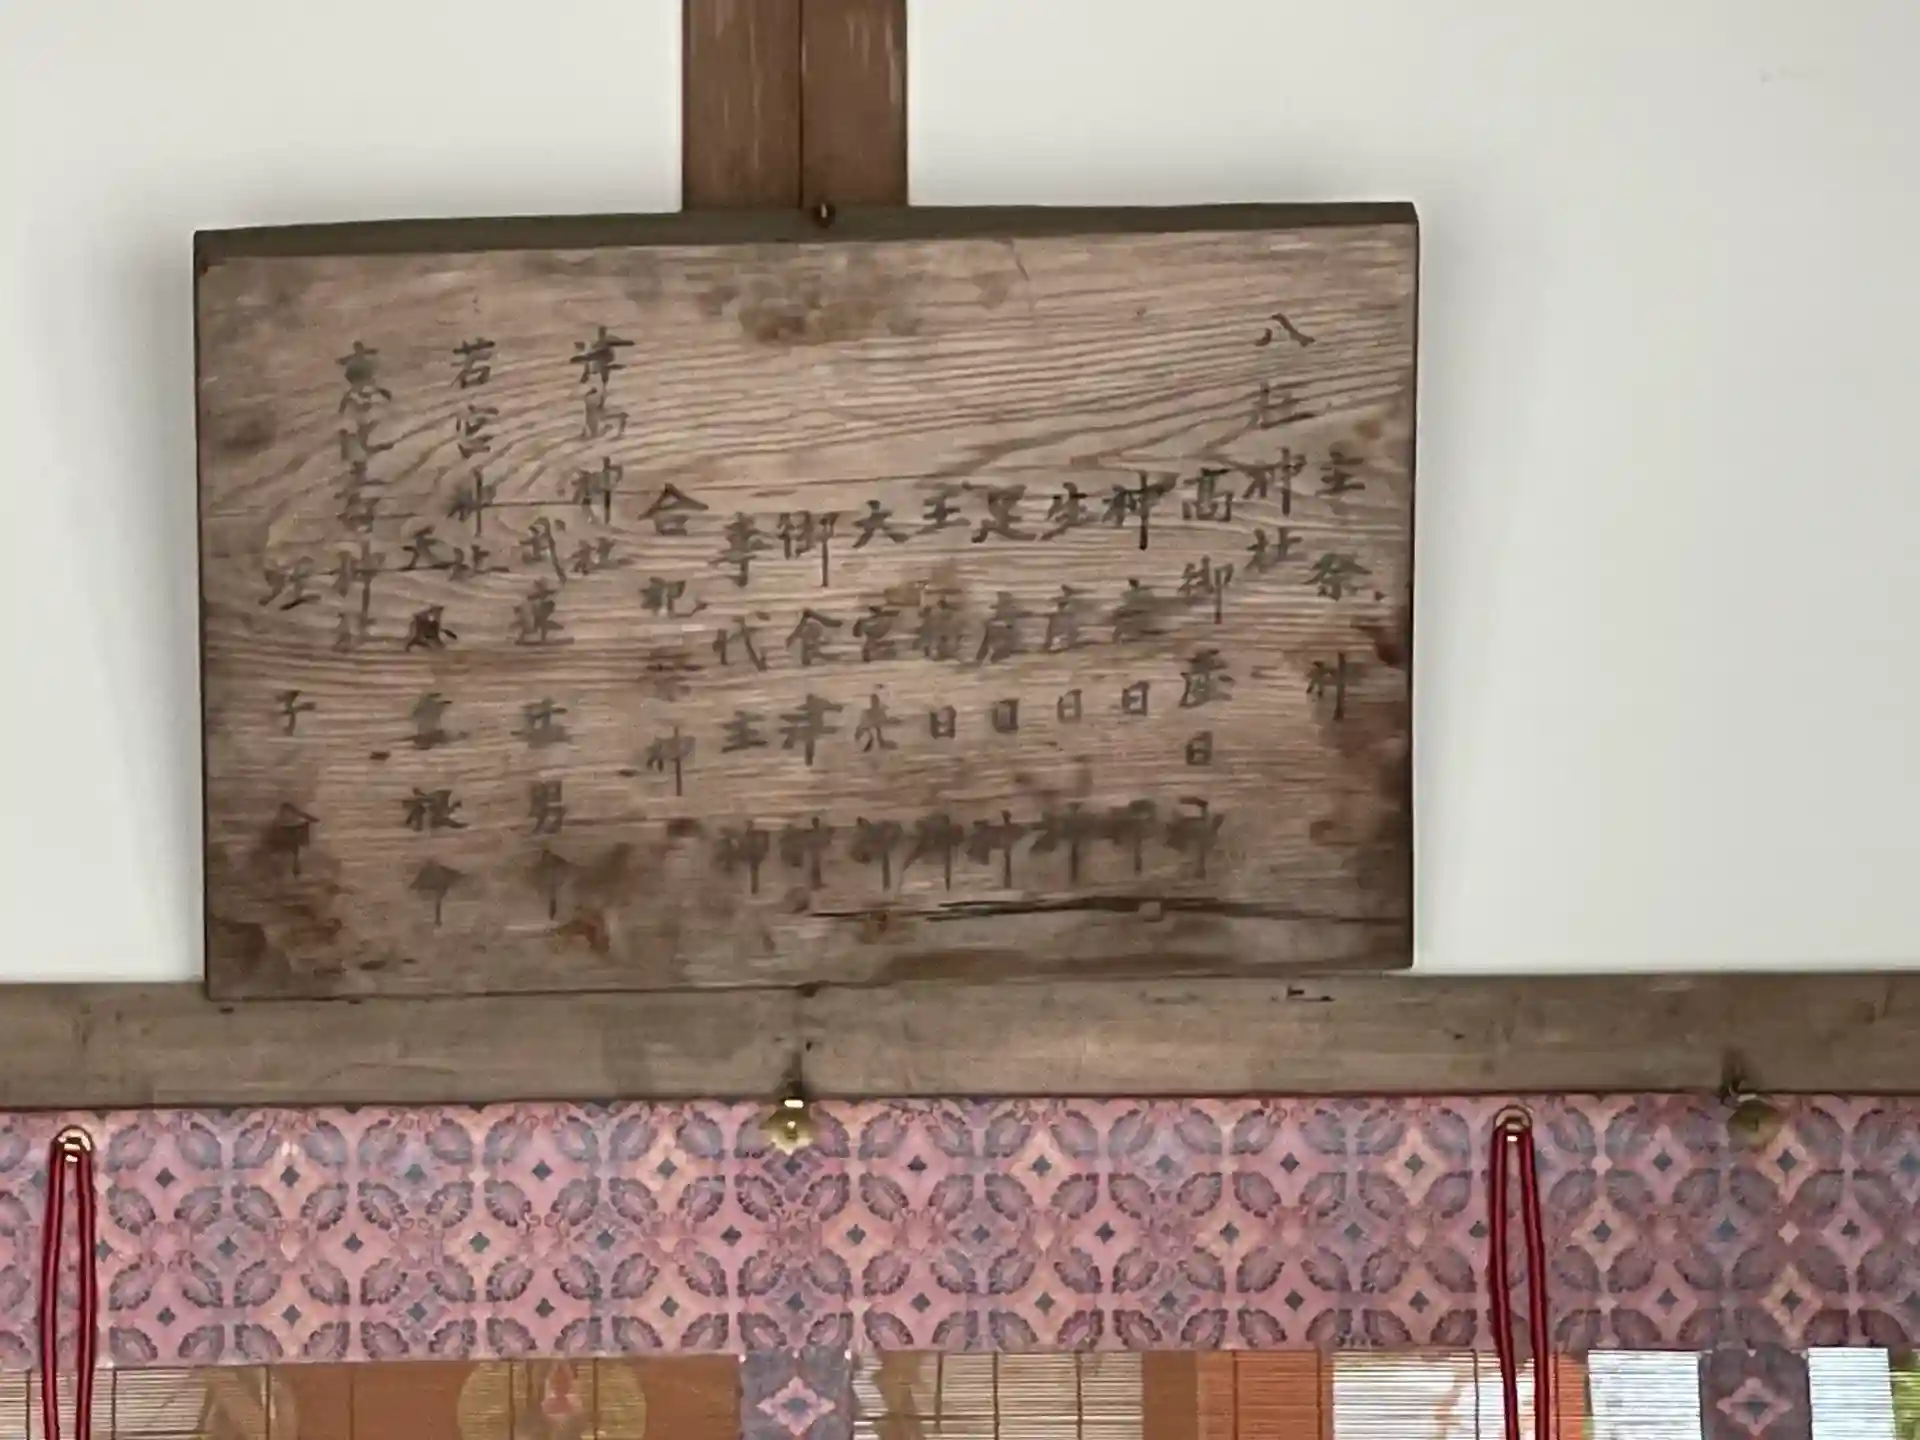 主祭神
八社神社
高御産日神
神産日神
生産日神
足産日神
玉積日神
大宮売神
御食津神
事代主神
合祀祭神
津島神社
武速佐男命
若宮神社
天忍雲根命
恵比寿神社
蛭子命